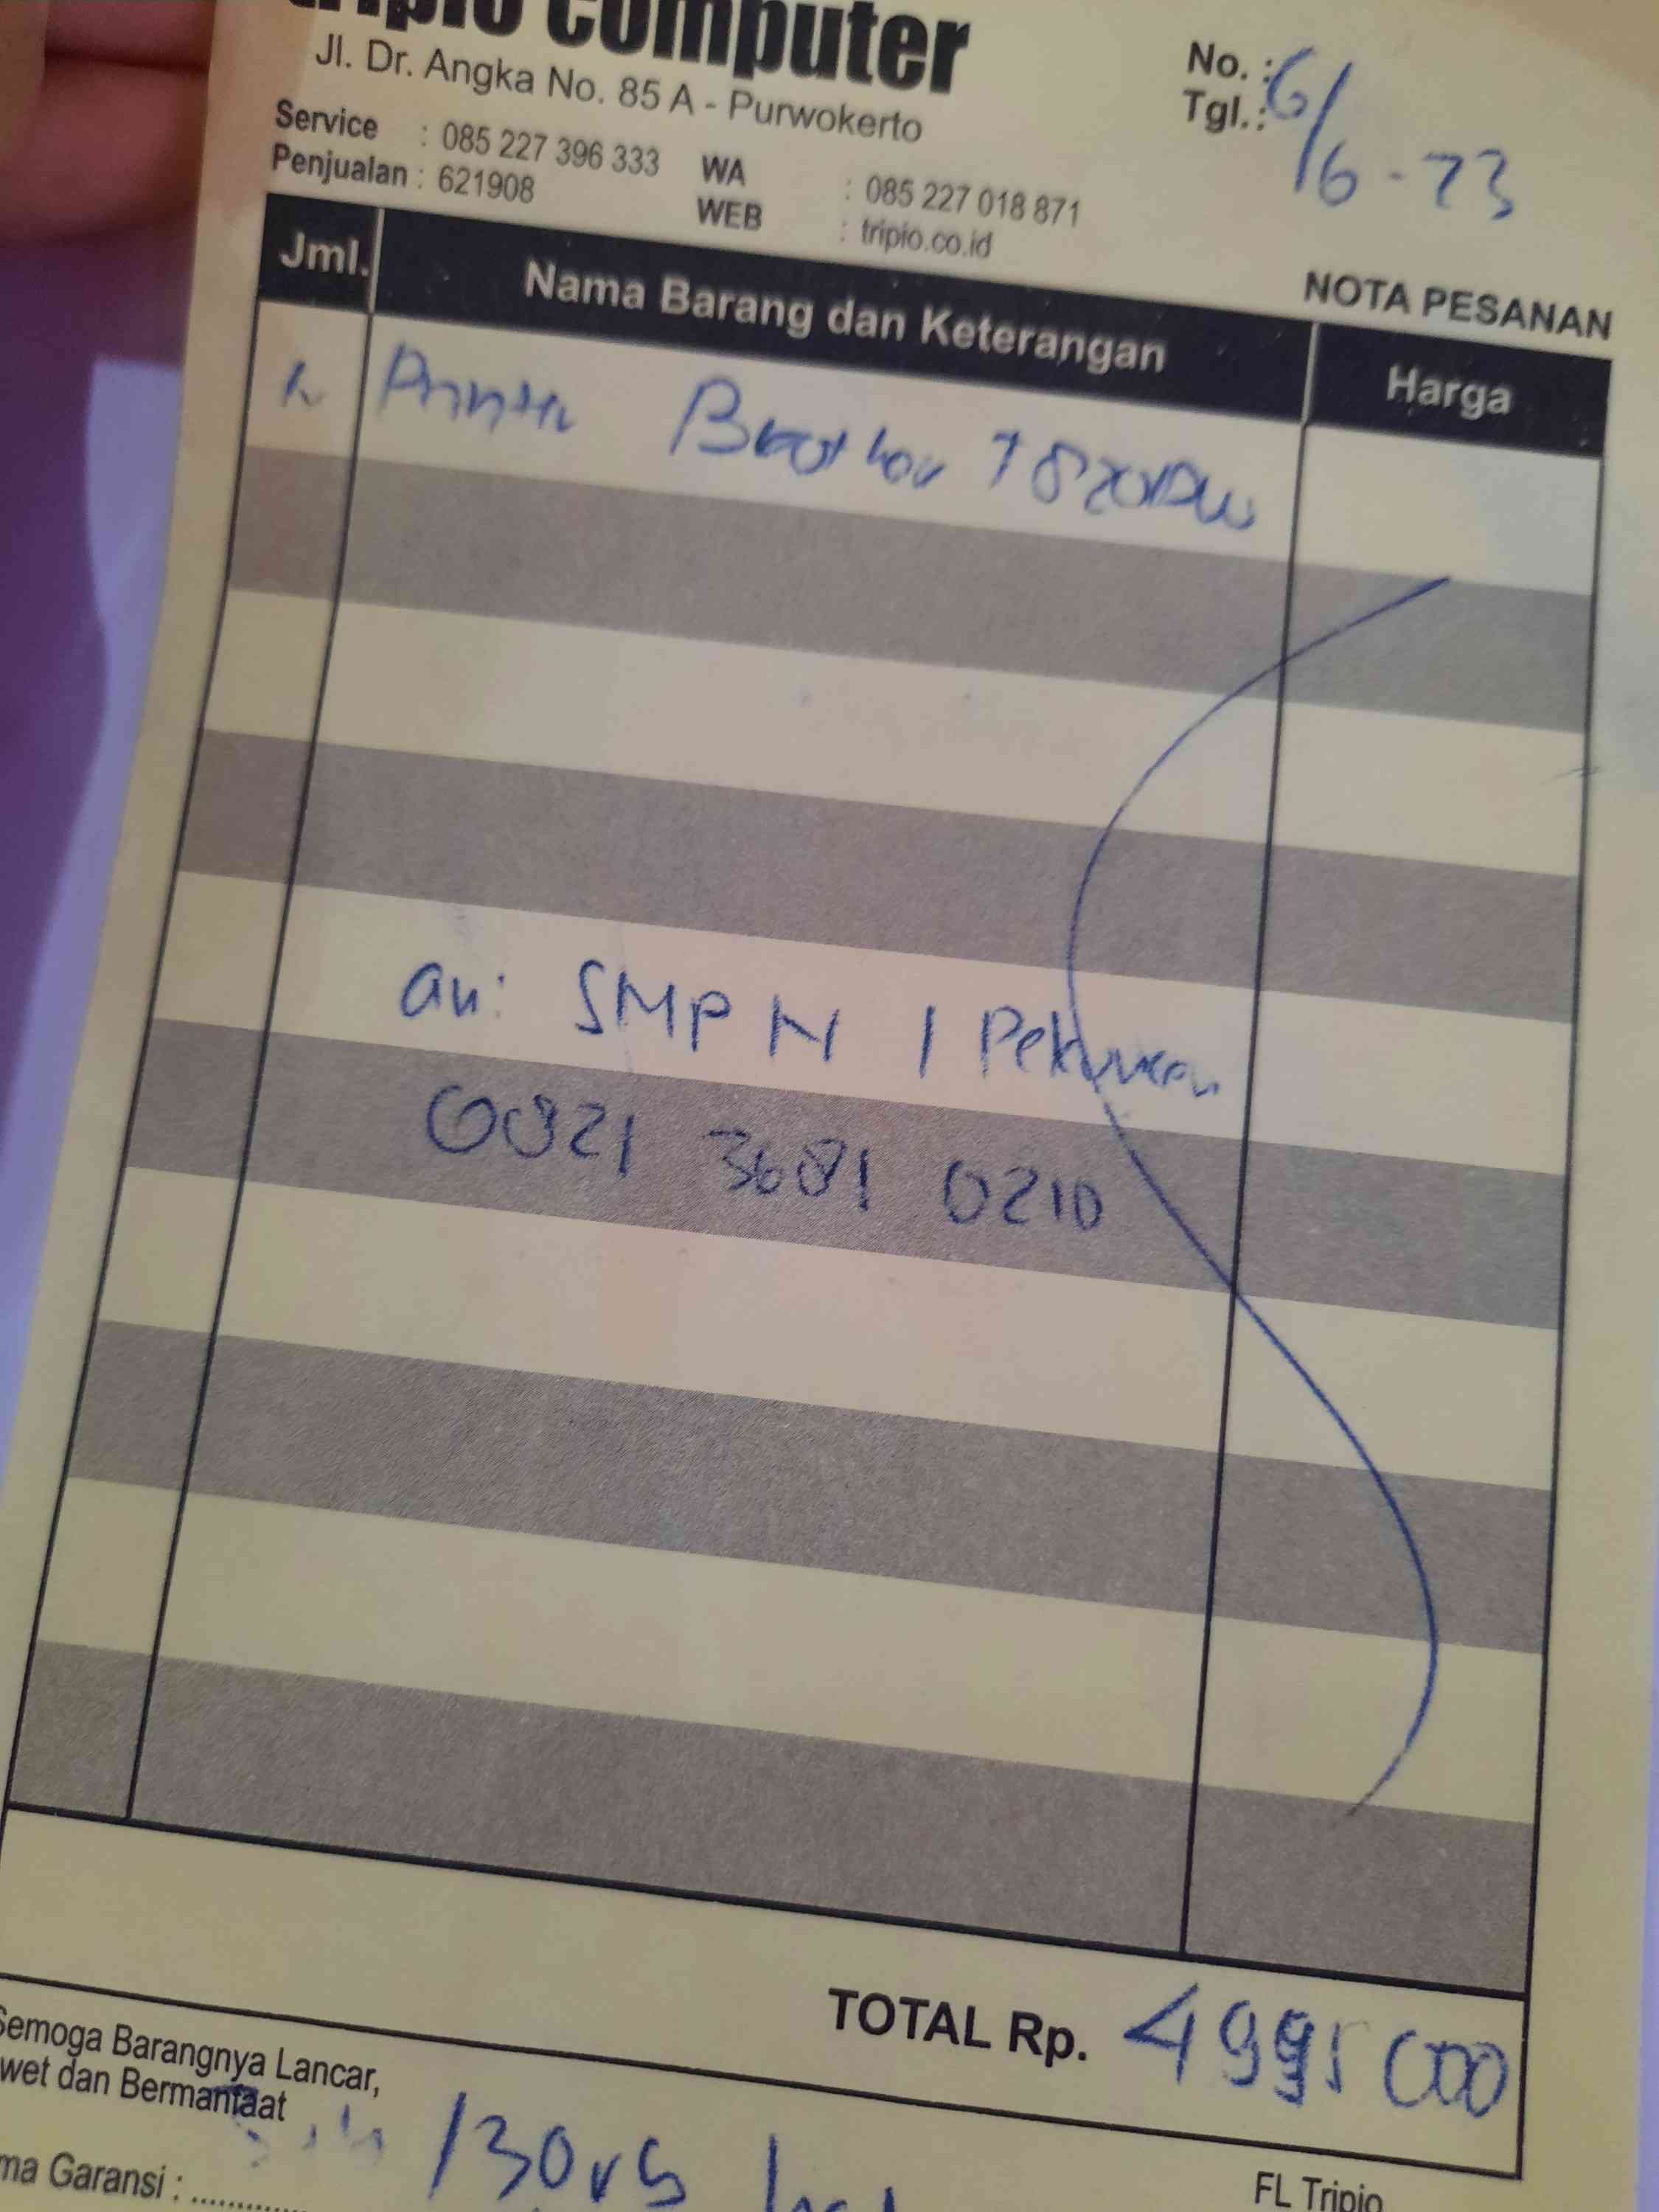 tripio computer
Jl. Dr. Angka No. 85 A - Purwokerto
Service : 085 227 396 333
Penjualan : 621908
WA : 085 227 018 871
WEB : tripio.co.id
No. :
Tgl. : 6/6-23
NOTA PESANAN
Jml. Nama Barang dan Keterangan Harga
Printer Brother T820DW
an: SMP N 1 Pekuncen
0821 3681 0210
TOTAL Rp. 4995000
Semoga Barangnya Lancar,
wet dan Bermanfaat
ma Garansi : ............
FL Tripio